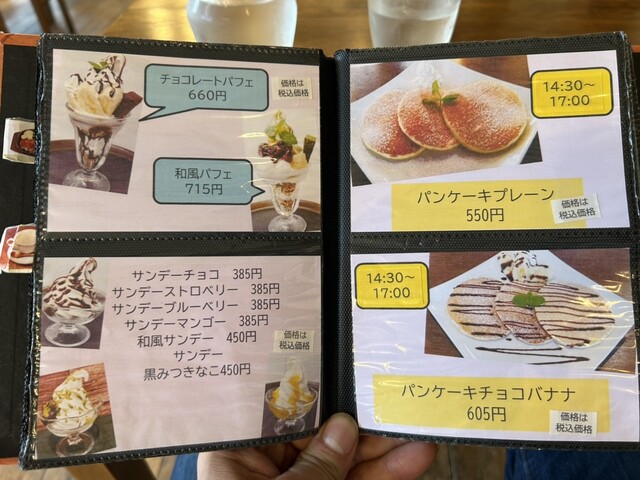 チョコレートパフェ
660円
価格は
税込価格
和風パフェ
715円
サンデーチョコ 385円
サンデーストロベリー 385円
サンデーブルーベリー 385円
サンデーマンゴー 385円
和風サンデー 450円
サンデー
黒みつきなこ450円
価格は
税込価格
14:30～
17:00
パンケーキプレーン
550円
価格は
税込価格
14:30～
17:00
パンケーキチョコバナナ
605円
価格は
税込価格